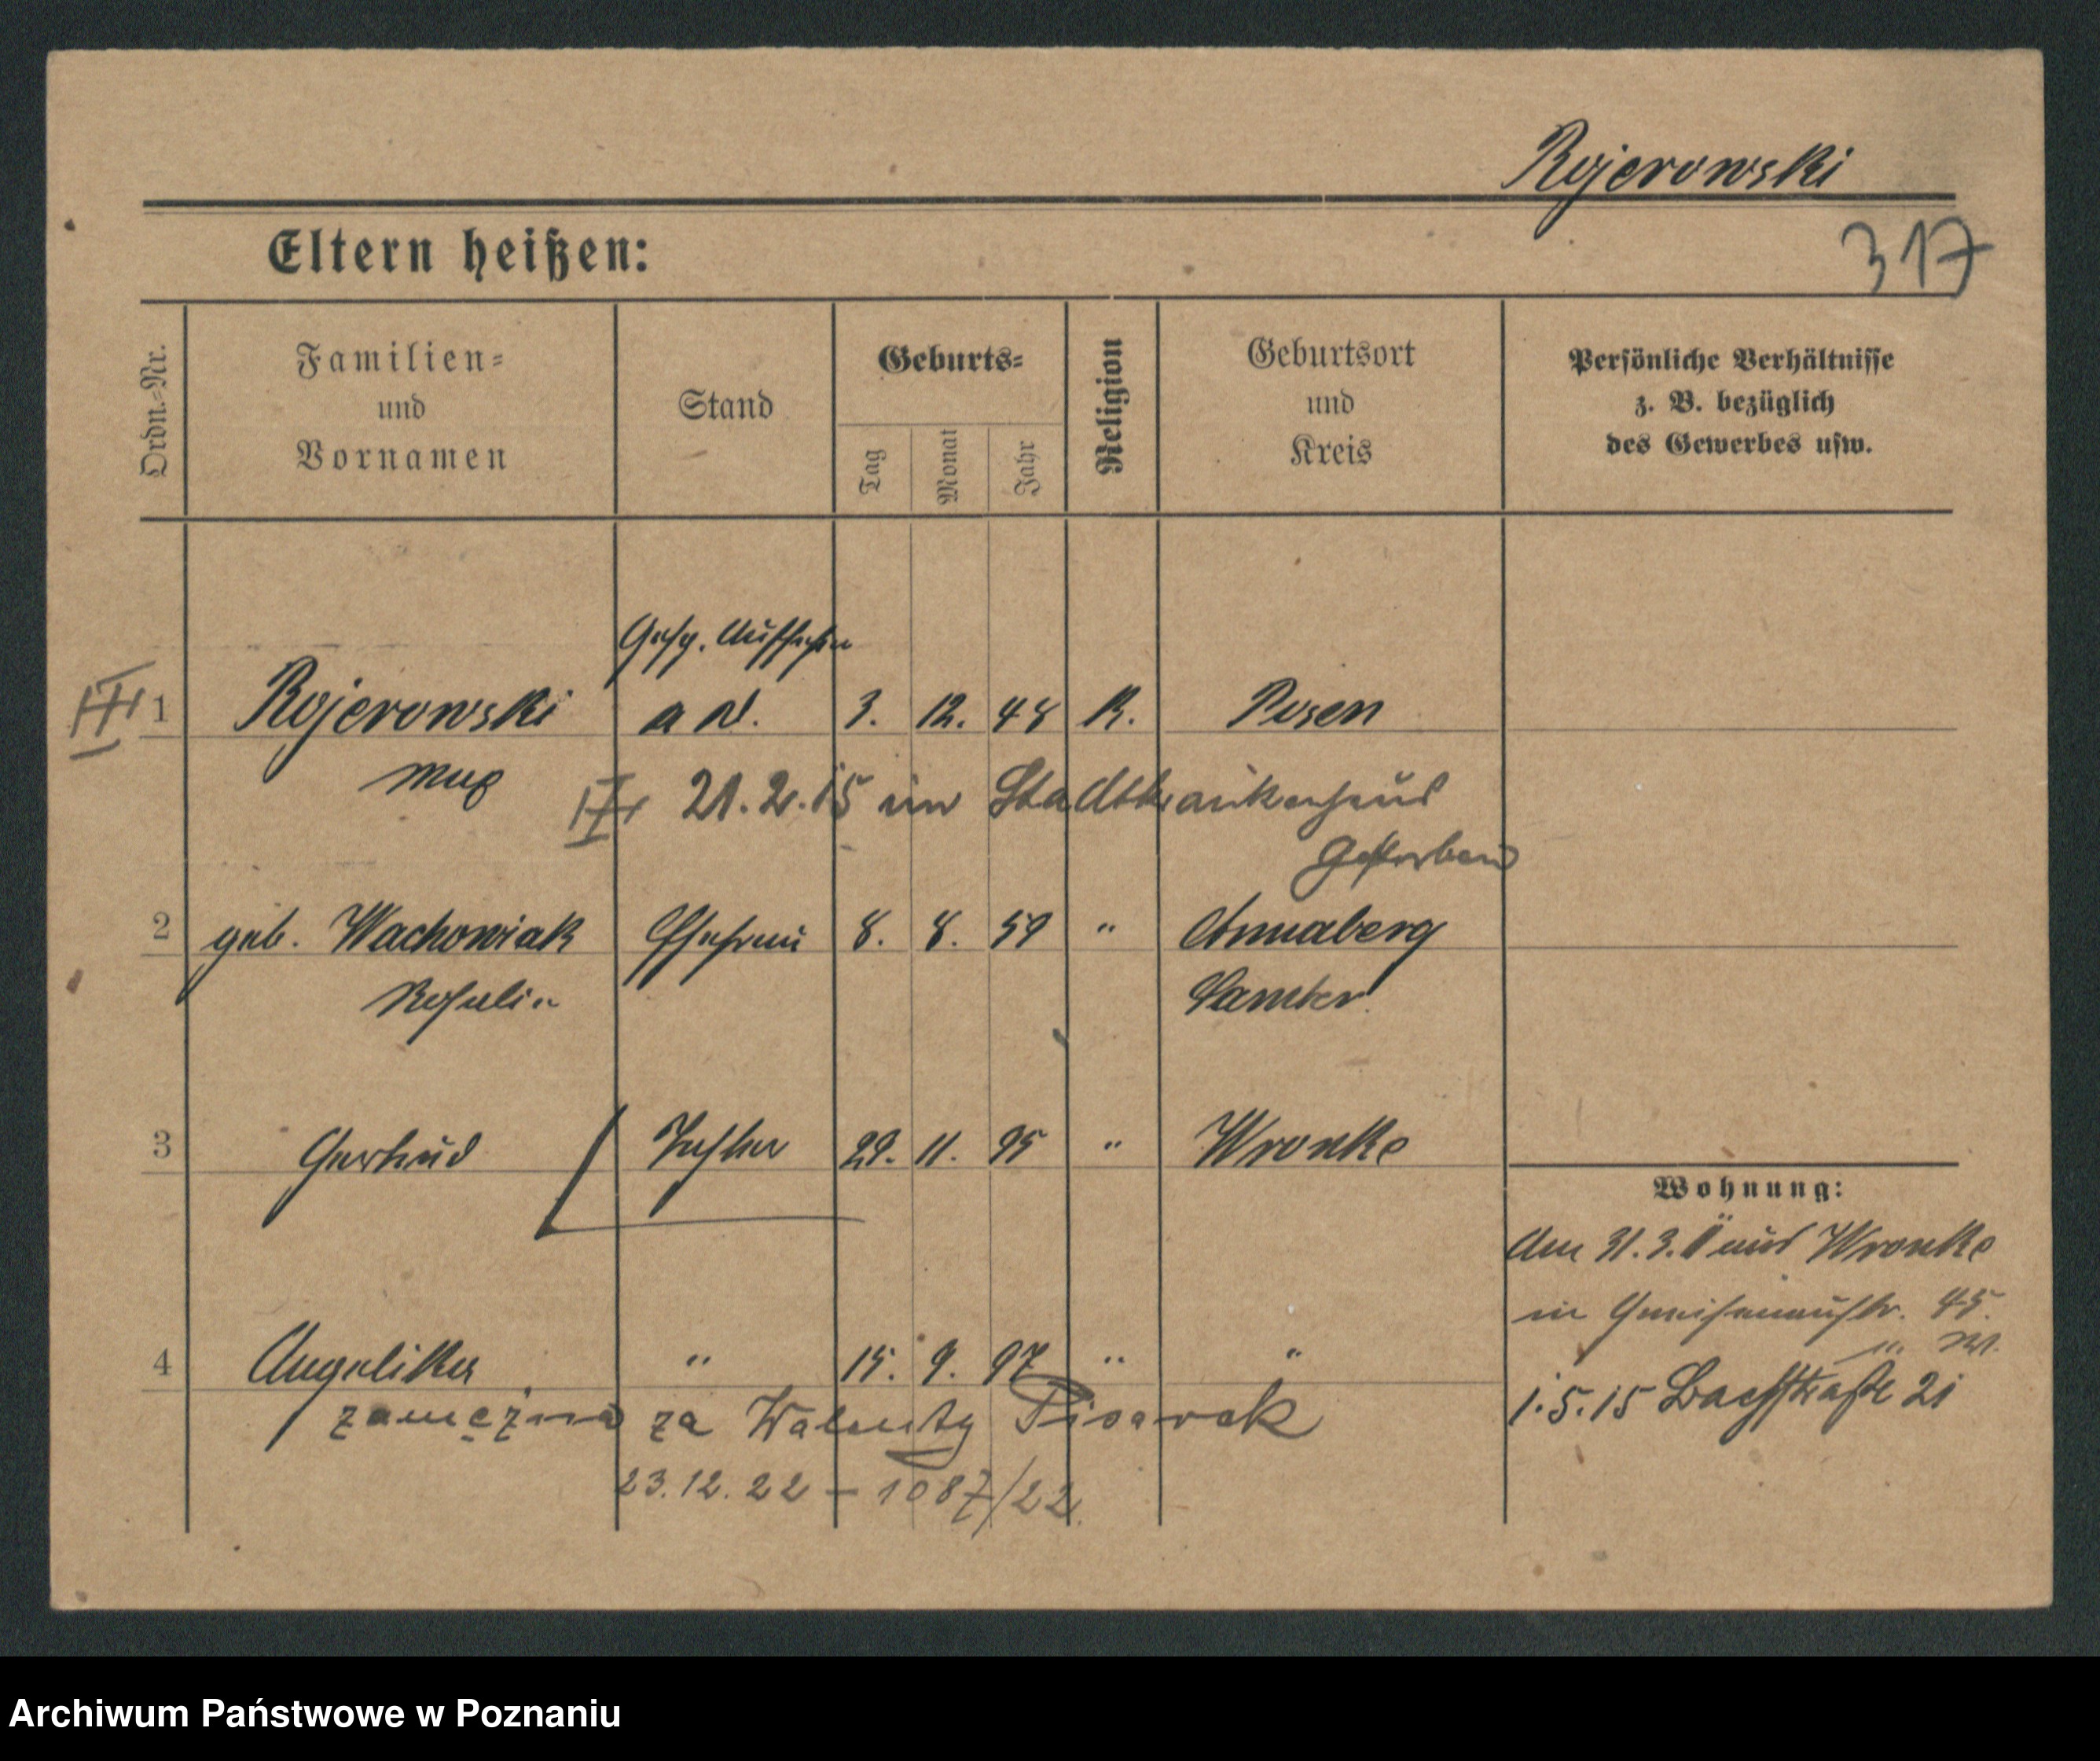 Rojerowski
317
Eltern heißen:
Ordn.-Nr. Familien- und Vornamen Stand Geburts- Tag Monat Jahr Religion Geburtsort und Kreis Persönliche Verhältnisse z. B. bezüglich des Gewerbes usw.
Gefg. Aufseher
1 Rojerowski a D. 3. 12. 48 K. Posen
Max
21.2.15 im Stadtkrankenhaus
gestorben
2 geb. Wachowiak Ehefrau 8. 8. 59 " Annaberg
Rosalie Samter.
3 Gertrud Tochter 29. 11. 95 " Wronke
Wohnung:
Am 31.3. aus Wronke
in Gneisenaustr. 45.
4 Angelika " 15. 9. 97 " "
1.5.15 Bachstraße 21
zamężna za Walenty Pisarek
23.12.22 – 1087/22.
Archiwum Państwowe w Poznaniu